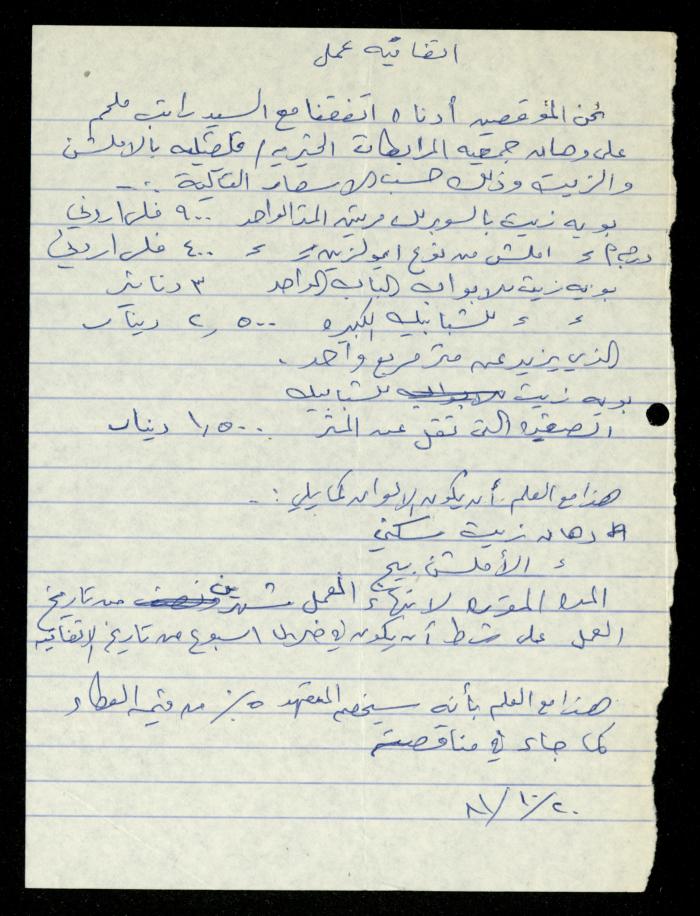 اتفاقيه عمل
نحن الموقعين أدناه اتفقنا مع السيد راتب ملحم
على دهان جمعيه المرابطات الخيريه / قلقيليه بالاملشن
والزيت وذلك حسب الاسعار التالية :-
بويه زيت بالسوبرلك مربع المتر الواحد ٩٠٠ فلس اردني
〃 املشن من نوع 〃 〃 ٤٠٠ فلس اردني
بويه زيت للابواب الباب الواحد ٣ دنانير
〃 〃 للشبابيك الكبيره ٢,٥٠٠ دينار
الذي يزيد عن متر مربع واحد .
بويه زيت للابواب للشبابيك
الصغيره التي تقل عن المتر ١,٥٠٠ دينار
هذا مع العلم أن يكون الالوان كما يلي :-
دهان زيت سكني
〃 الأملشن بيج
المده المقرره لانتهاء العمل شهرين ونصف من تاريخ
العمل على شرط أن يكون في خلال اسبوع من تاريخ الاتفاقيه
هذا مع العلم بأنه سيخصم المتعهد ٥٪ من قيمه العطاء
كما جاء في مناقصته
٨١/١٠/٢٠